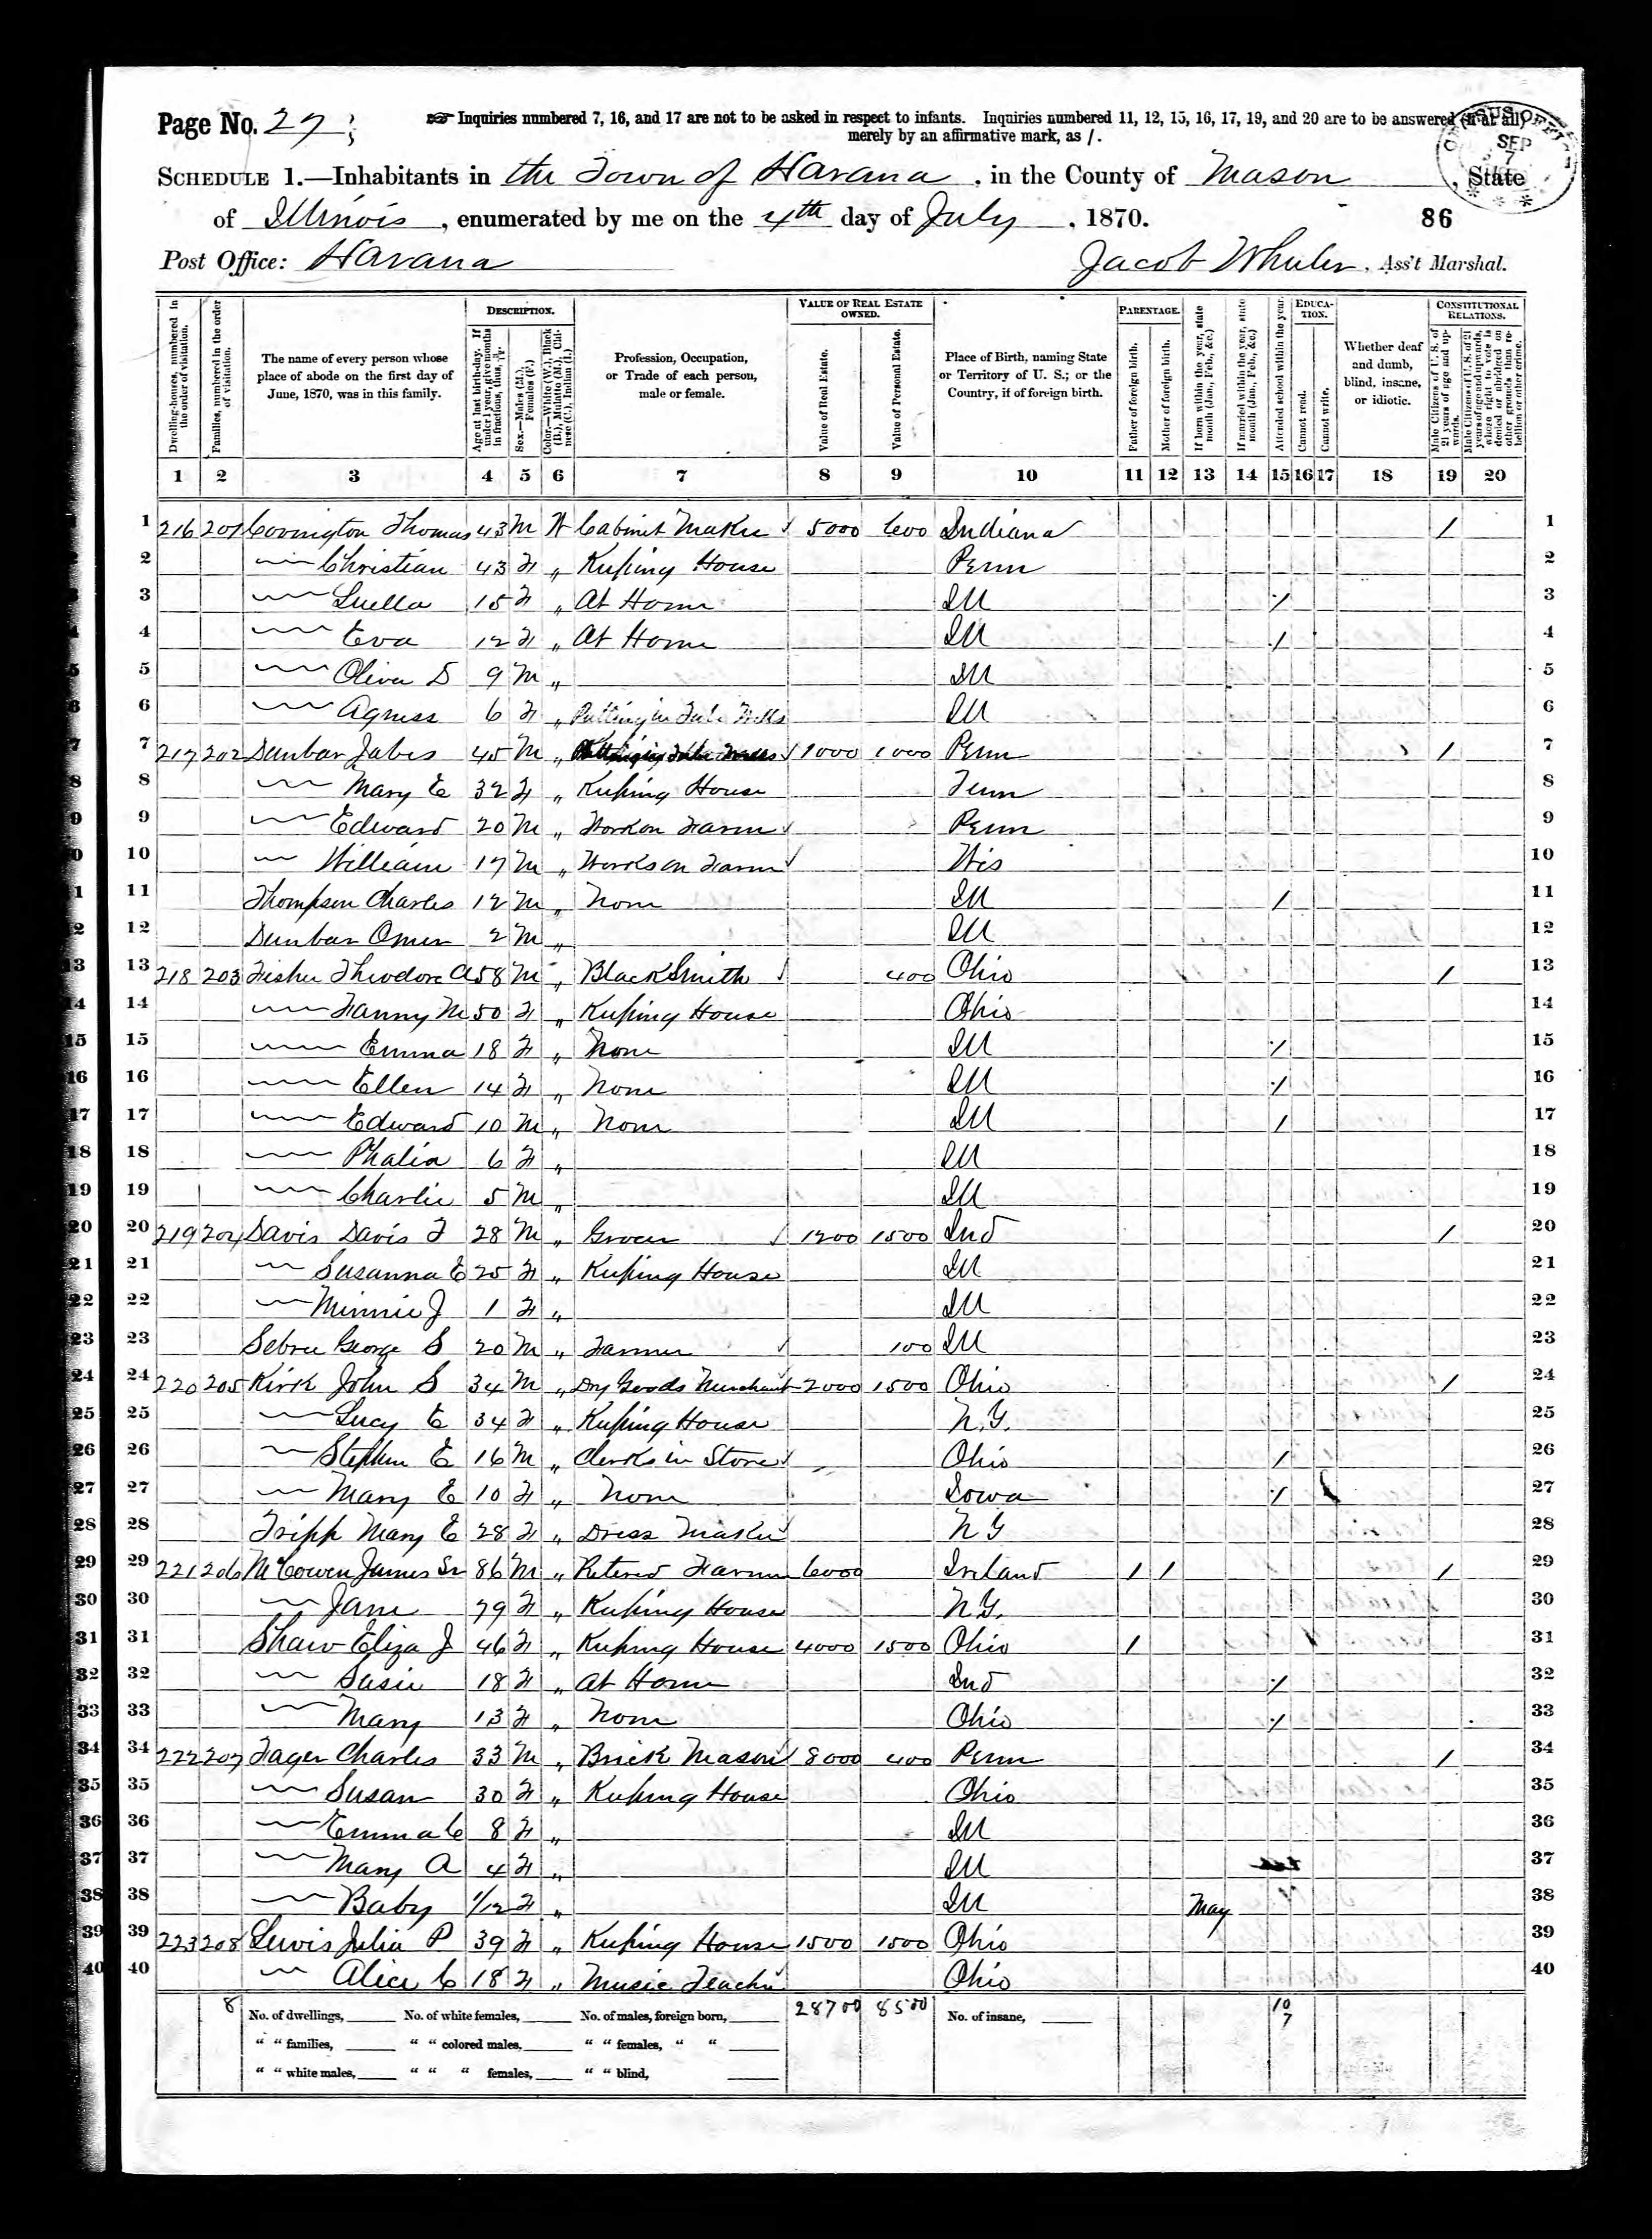 Page No. 27
☞ Inquiries numbered 7, 16, and 17 are not to be asked in respect to infants. Inquiries numbered 11, 12, 15, 16, 17, 19, and 20 are to be answered (if at all)
merely by an affirmative mark, as /.
SCHEDULE 1.—Inhabitants in the Town of Havana, in the County of Mason, State
of Illinois, enumerated by me on the 4th day of July, 1870.
86
SEP 7
Post Office: Havana
Jacob Wheeler, Ass't Marshal.
Dwelling-houses, numbered in the order of visitation.
Families, numbered in the order of visitation.
The name of every person whose place of abode on the first day of June, 1870, was in this family.
DESCRIPTION.
Age at last birth-day. If under 1 year, give months in fractions, thus, 3/12.
Sex.—Males (M.), Females (F.)
Color.—White (W.), Black (B.), Mulatto (M.), Chinese (C.), Indian (I.)
Profession, Occupation, or Trade of each person, male or female.
VALUE OF REAL ESTATE OWNED.
Value of Real Estate.
Value of Personal Estate.
Place of Birth, naming State or Territory of U. S.; or the Country, if of foreign birth.
PARENTAGE.
Father of foreign birth.
Mother of foreign birth.
If born within the year, state month (Jan., Feb., &c.)
If married within the year, state month (Jan., Feb., &c.)
Attended school within the year.
EDUCATION.
Cannot read.
Cannot write.
Whether deaf and dumb, blind, insane, or idiotic.
CONSTITUTIONAL RELATIONS.
Male Citizens of U. S. of 21 years of age and upwards.
Male Citizens of U. S. of 21 years of age and upwards, whose right to vote is denied or abridged on other grounds than rebellion or other crime.
1 2 3 4 5 6 7 8 9 10 11 12 13 14 15 16 17 18 19 20
1 216 201 Covington Thomas 43 M W Cabinet Maker 5000 600 Indiana / 1
2 — Christian 43 F " Keeping House Penn 2
3 — Luella 15 F " At Home Ill / 3
4 — Eva 12 F " At Home Ill / 4
5 — Oliver S 9 M " Ill 5
6 — Agness 6 F " Putting in Tube Wells Ill 6
7 217 202 Dunbar Jabes 45 M " 1000 1000 Penn / 7
8 — Mary E 32 F " Keeping House Tenn 8
9 — Edward 20 M " Work on Farm Penn 9
10 — William 17 M " Works on Farm Wis 10
11 Thompson Charles 12 M " None Ill / 11
12 Dunbar Omer 2 M " Ill 12
13 218 203 Fisher Theodore A 58 M " BlackSmith 400 Ohio / 13
14 — Fanny M 50 F " Keeping House Ohio 14
15 — Emma 18 F " None Ill / 15
16 — Ellen 14 F " None Ill / 16
17 — Edward 10 M " None Ill / 17
18 — Phalia 6 F " Ill 18
19 — Charlie 5 M " Ill 19
20 219 204 Davis Davis F 28 M " Grocer 1200 1500 Ind / 20
21 — Susanna E 25 F " Keeping House Ill 21
22 — Minnie J 1 F " Ill 22
23 Sebree George S 20 M " Farmer 100 Ill 23
24 220 205 Kirk John S 34 M " Dry Goods Merchant 2000 1500 Ohio / 24
25 — Lucy E 34 F " Keeping House N.Y. 25
26 — Stephen E 16 M " Clerks in Store Ohio / 26
27 — Mary E 10 F " None Iowa / 27
28 Tripp Mary E 28 F " Dress Maker N Y 28
29 221 206 McCowen James Sr 86 M " Retired Farmer 6000 Ireland / / / 29
30 — Jane 79 F " Keeping House N.Y. 30
31 Shaw Eliza J 46 F " Keeping House 4000 1500 Ohio / 31
32 — Susie 18 F " At Home Ind / 32
33 — Mary 13 F " None Ohio / 33
34 222 207 Fager Charles 33 M " Brick Mason 8000 400 Penn / 34
35 — Susan 30 F " Keeping House Ohio 35
36 — Emma C 8 F " Ill 36
37 — Mary A 4 F " Ill 37
38 — Baby 1/12 F " Ill May 38
39 223 208 Lewis Julia P 39 F " Keeping House 1500 1500 Ohio 39
40 — Alice C 18 F " Music Teacher Ohio 40
8 No. of dwellings, No. of white females, No. of males, foreign born, 28700 8500 No. of insane, 10 7
" " families, " " colored males, " " females, " "
" " white males, " " " females, " " blind,